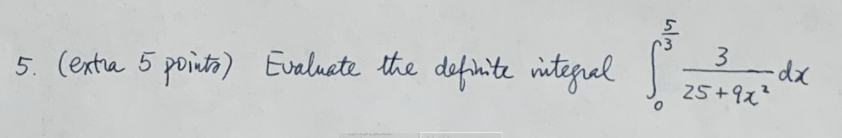 5. (extra 5 points) Evaluate the definite integral $\int_0^{\frac{5}{3}} \frac{3}{25+9x^2} dx$